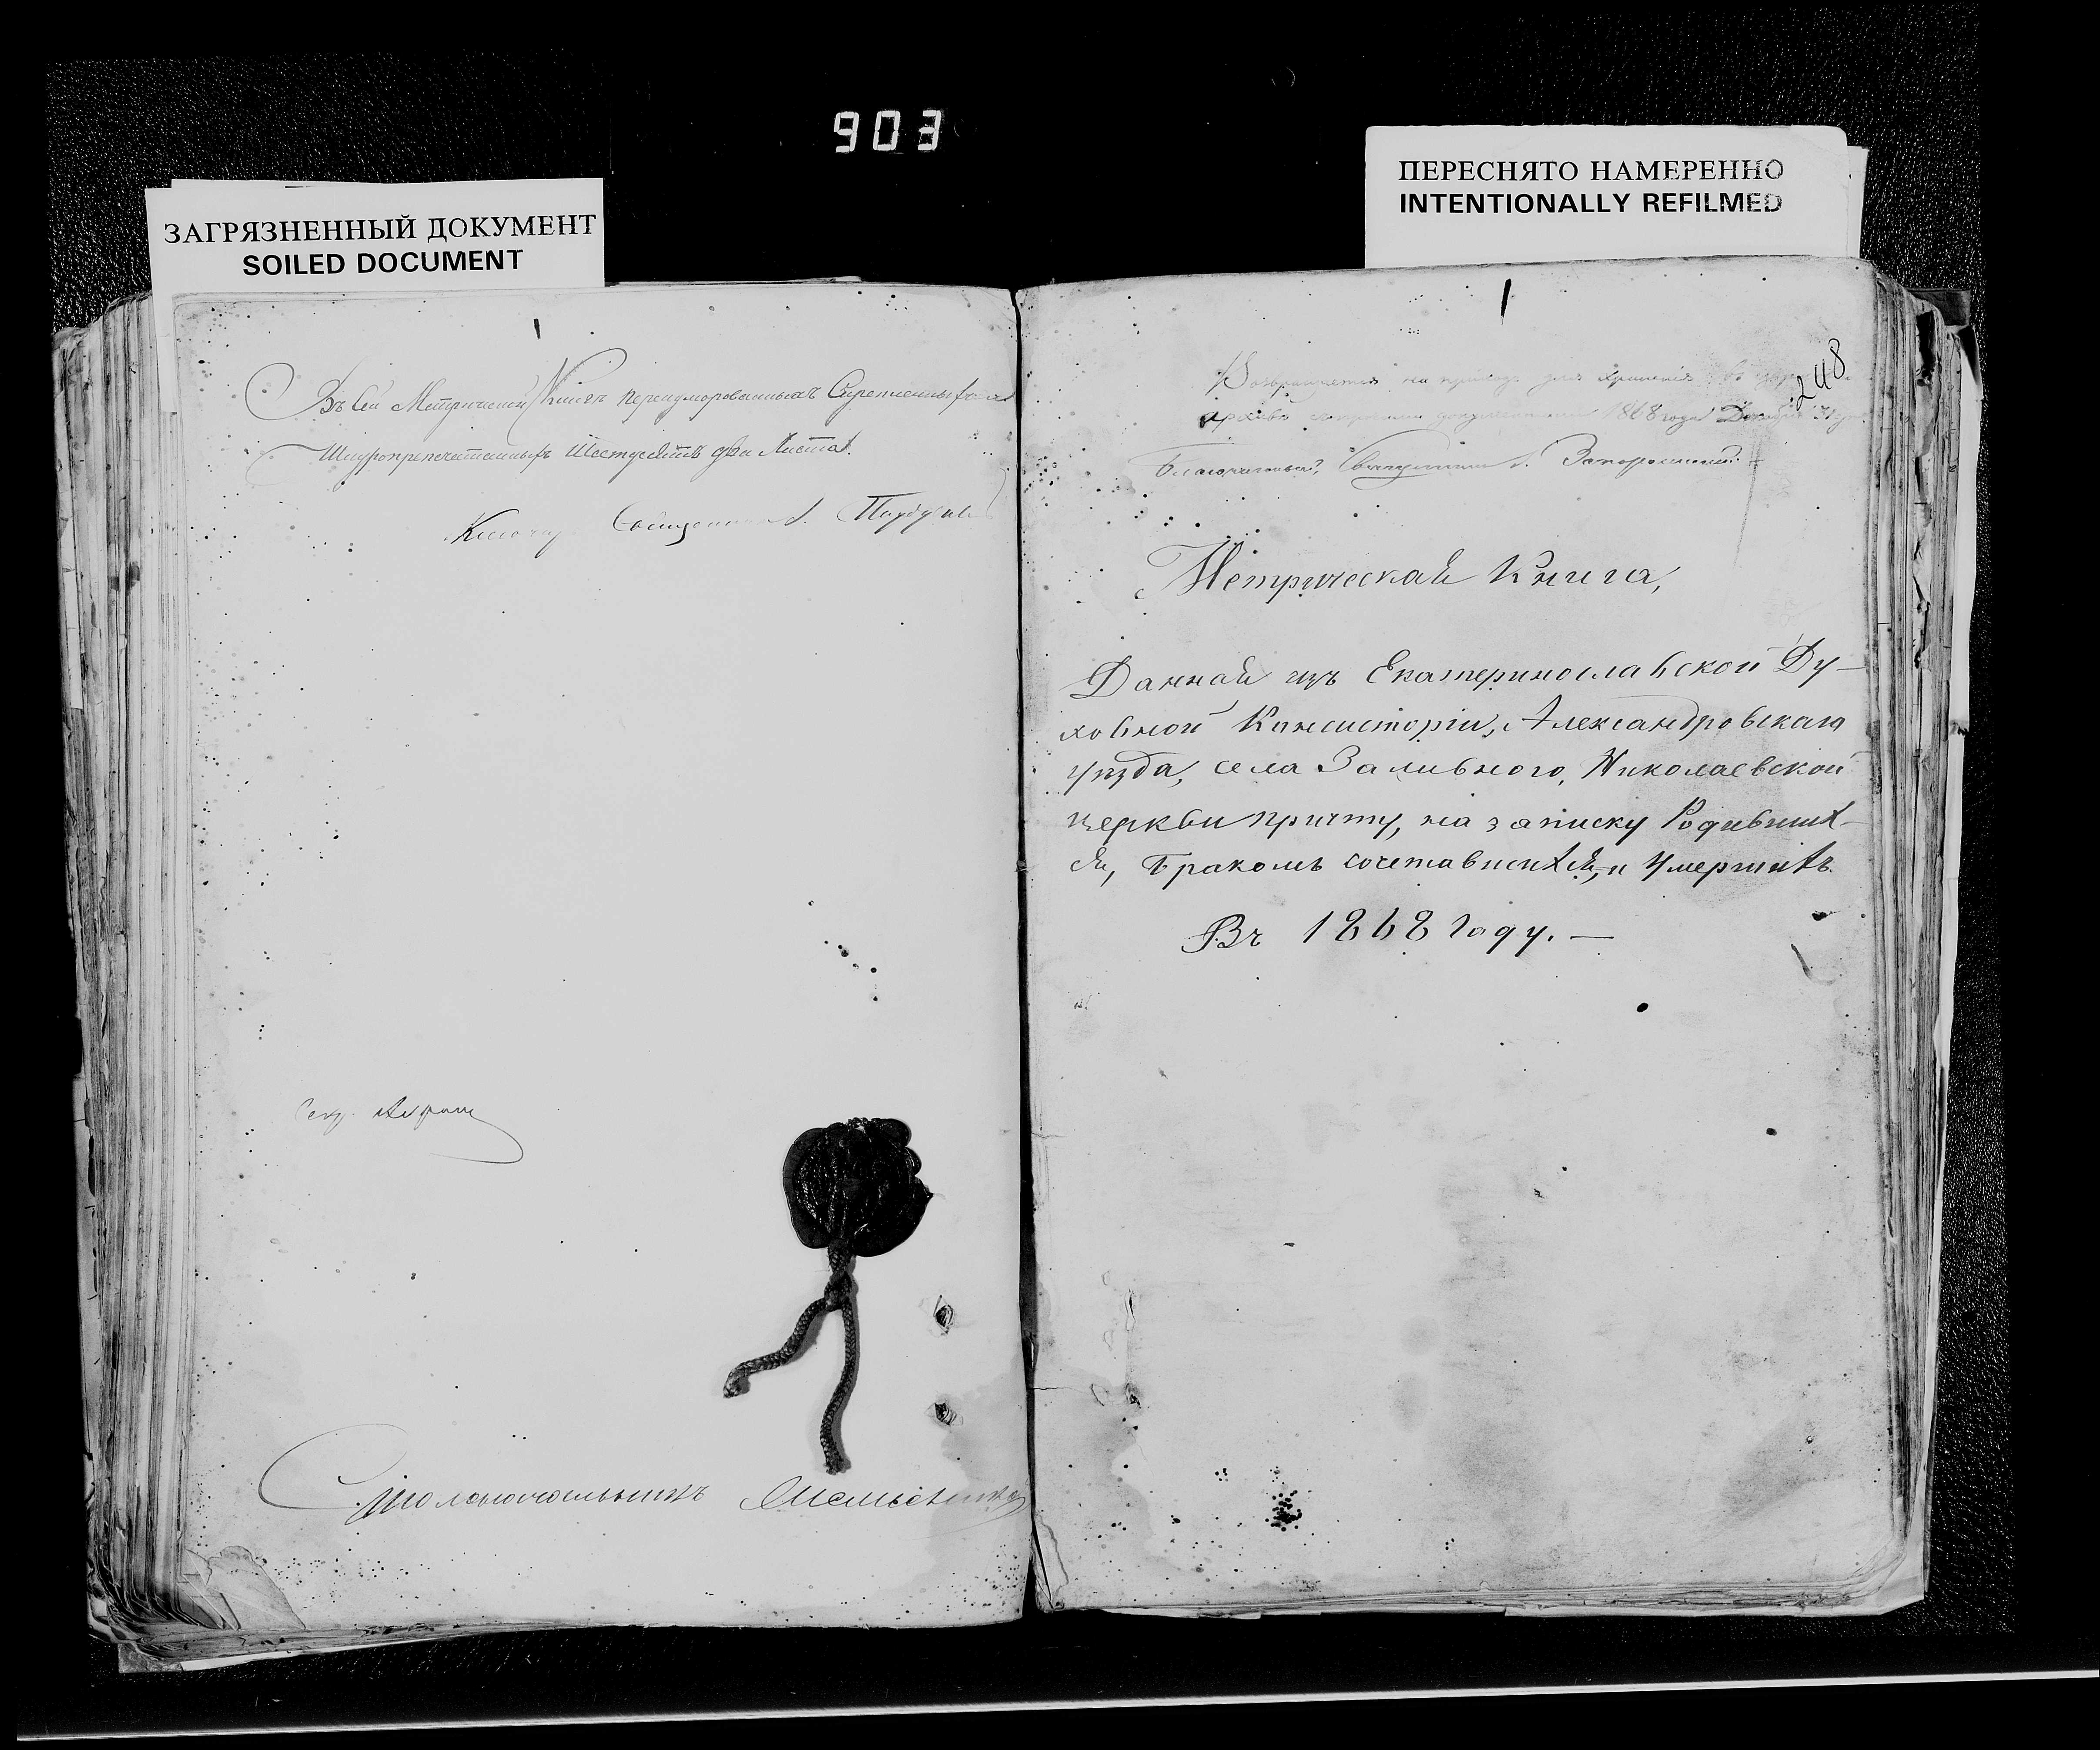 903
ЗАГРЯЗНЕННЫЙ ДОКУМЕНТ
SOILED DOCUMENT
ПЕРЕСНЯТО НАМЕРЕННО
INTENTIONALLY REFILMED
Въ сей Метрической Книгѣ перенумерованныхъ Скрепленныхъ
Шнуропрепечатанныхъ Шестьдесятъ два Листа.
Ключарь Священникъ
Секр.
Столоначальникъ
248
Возвращается на приходъ для храненія въ
архивѣ 1868 года Декабря
Благочинный, Священникъ
Метрическая Книга,
Данная изъ Екатеринославской Ду-
ховной Консисторіи, Александровскаго
уѣзда, села Заливного, Николаевской
церкви причту, на записку Родивших-
ся, Бракомъ сочетавшихся, и Умершихъ.
Въ 1868 Году. —